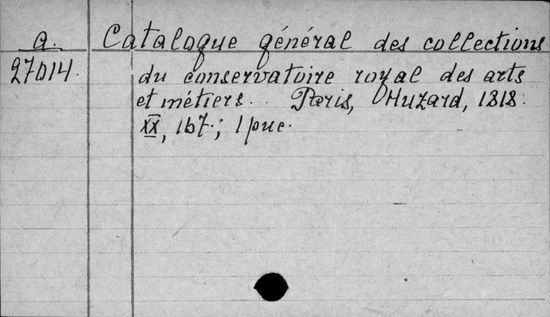 a. Catalogue général des collections
27014. du conservatoire royal des arts
et métiers. Paris, Huzard, 1818.
XX, 167.; 1 рис.